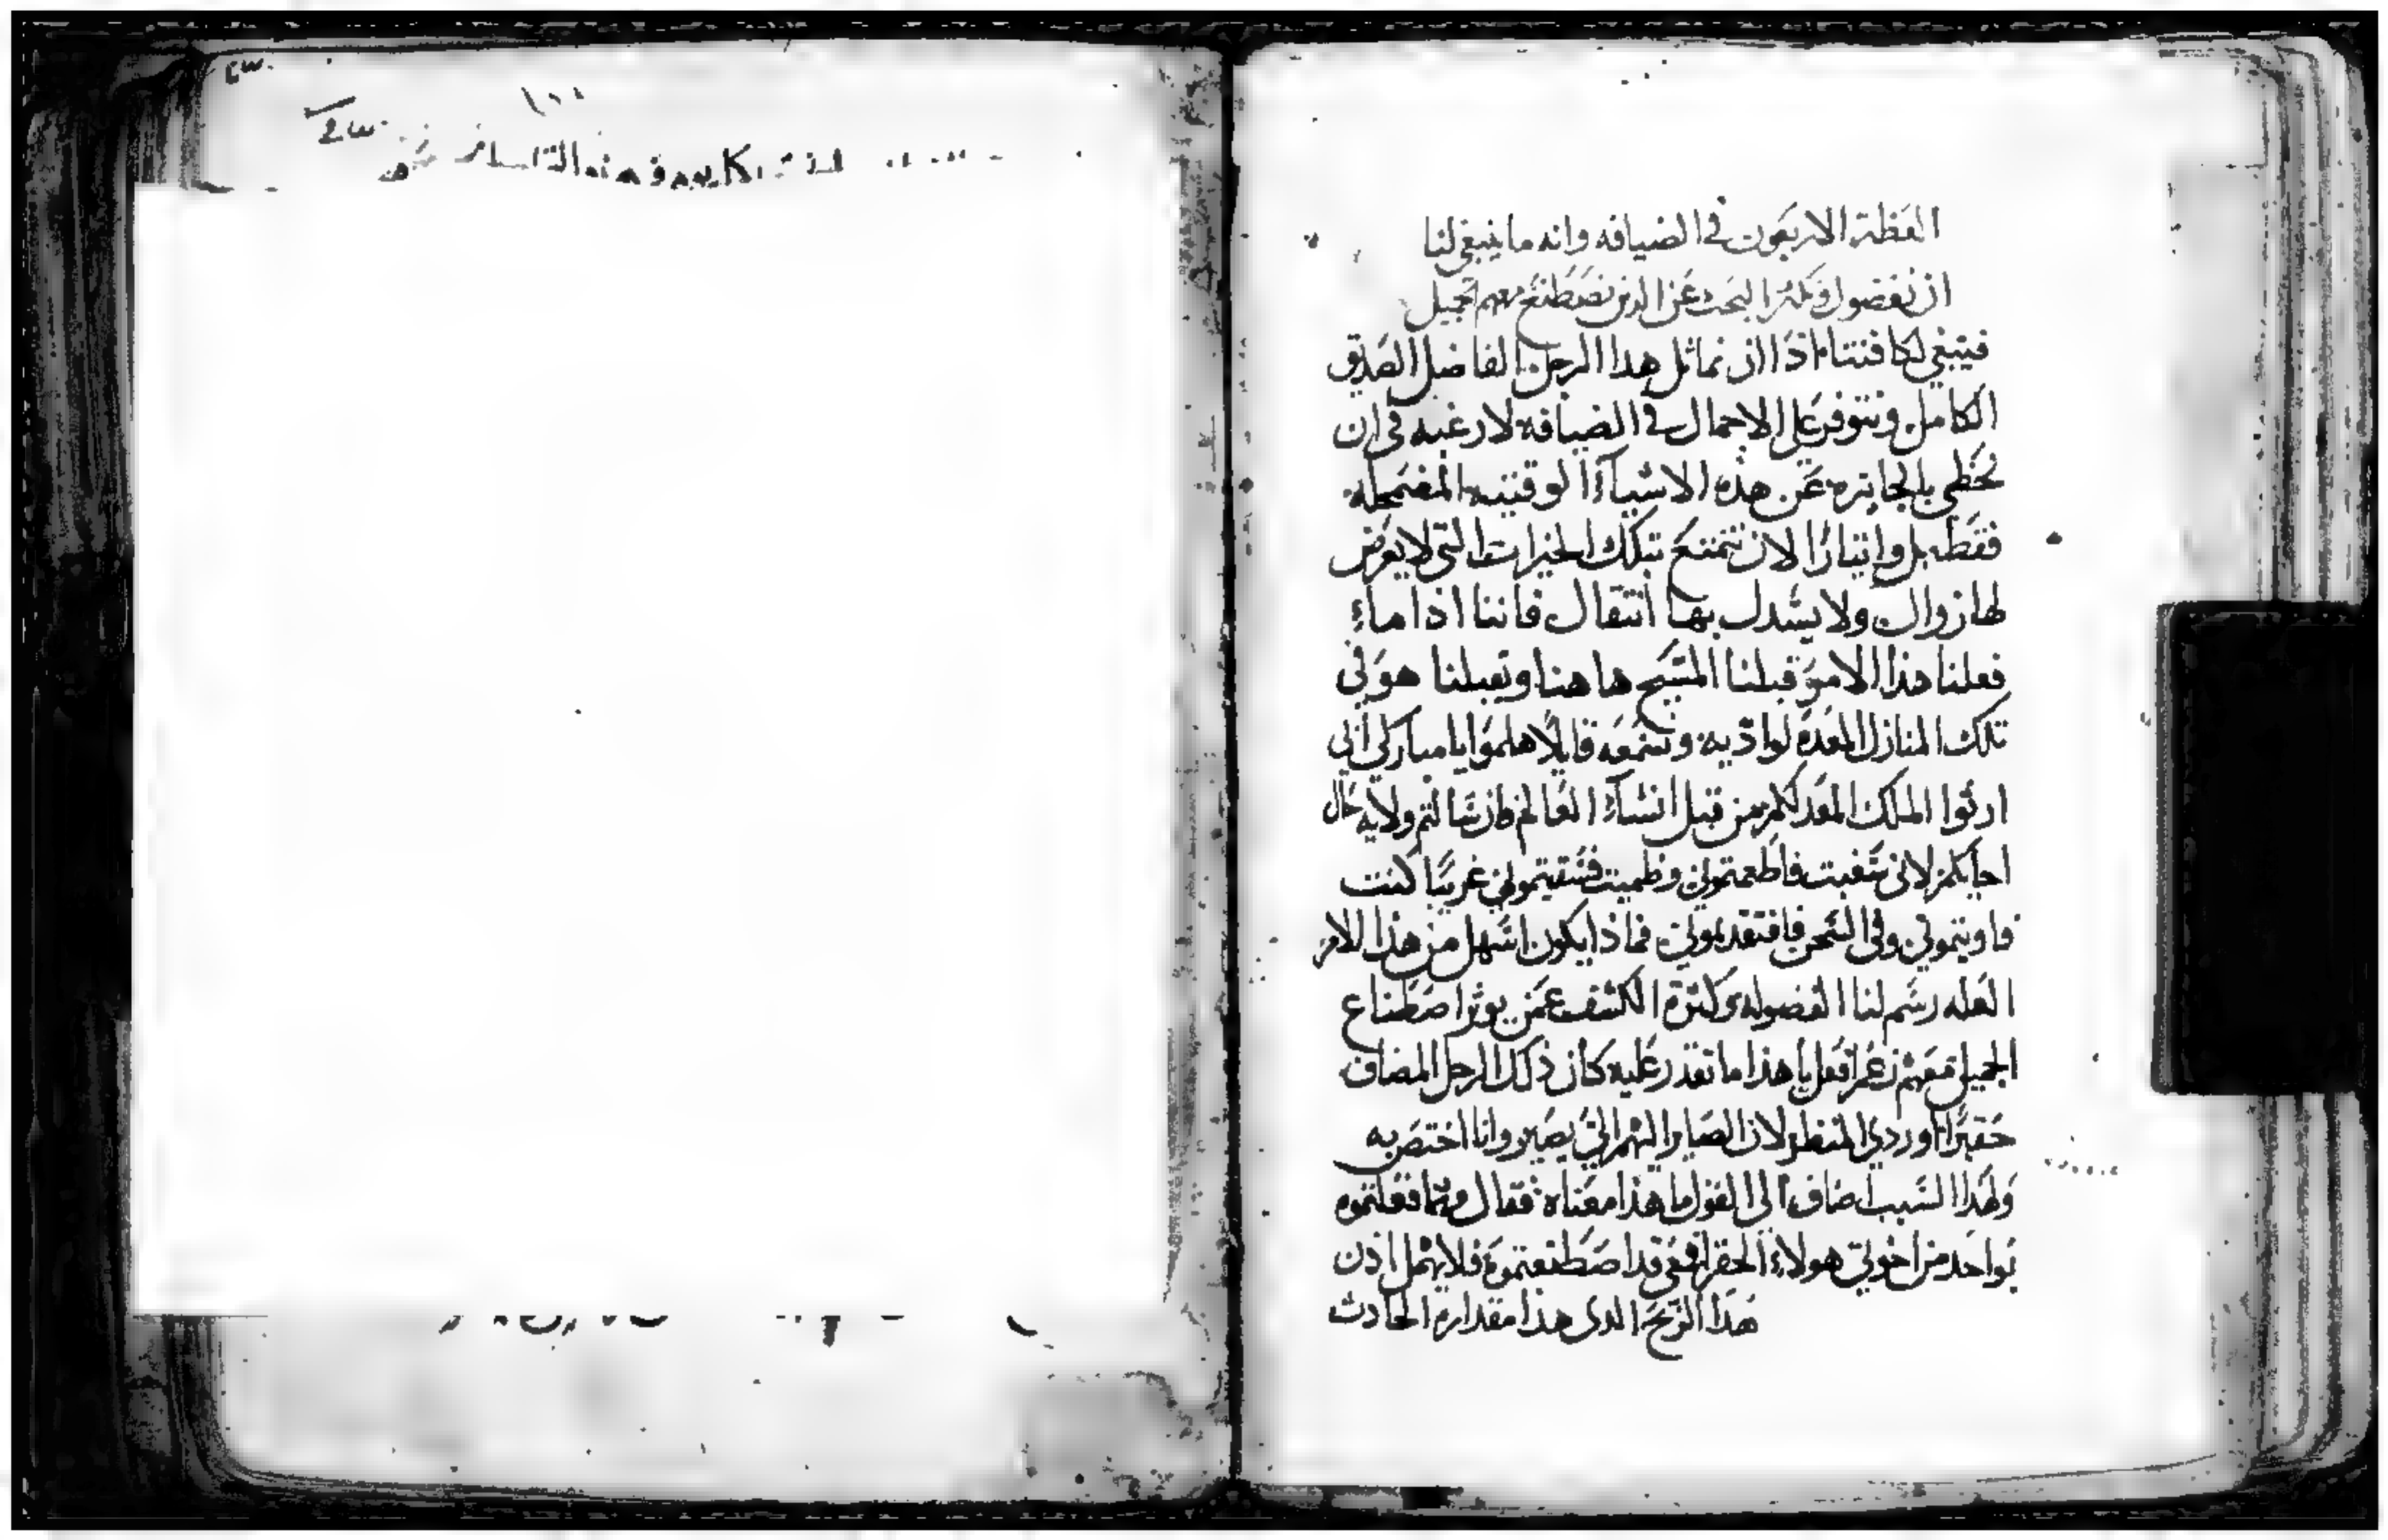 العظة الاربعون في الضيافه وانه ما ينبغي لنا
ان نفضول ونكثر البحث عن الدين نصطنع معهم جميل
فينبغي لكافتنا اذًا ان نماثل هدا الرجل الفاضل الصديق
الكامل ونتوفر على الاجمال في الضيافه لا رغبه في ان
نحظي بالجايزه عن هذه الاشيآء الوقتيه المضمحله
فقط بل وايثارًا لان نتمتع بتلك الخيرات التي لا يعرض
لها زوال ولا يستدل بها انتقال فاننا اذا ماء
فعلنا هذا الامر قبلنا المسيح هاهنا ويقبلنا هو في
تلك المنازل المعده لواديه ونسمعه قايلًا هلموا يا مباركي ابي
ارثوا الملك المعد لكم من قبل انشآء العالم فان سالتم ولايه حال
اجابكم لاني سغبت فاطعمتموني وظميت فسقيتموني غريبًا كنت
فاويتموني وفي السجن فافتقدتموني فماذا يكون اسهل من هذا الامر
العله رسم لنا الفضوله وكثرة الكشف عمن يوثر اصطناع
الجميل معهم زعم افعل يا هذا ما تقدر عليه كان ذلك الرجل المضاف
حقيرًا اوردي المنظر لان الصاير اليهم الي يصير وانا اختص به
ولهدا السبب اضاف الى القول ما هذا معناه فقال مهما فعلتموه
بواحد من اخوتي هولاء الحقرا فمعي قد اصطنعتموه فلا نهمل اذن
هذا الربح الدى هذا مقداره الحادث